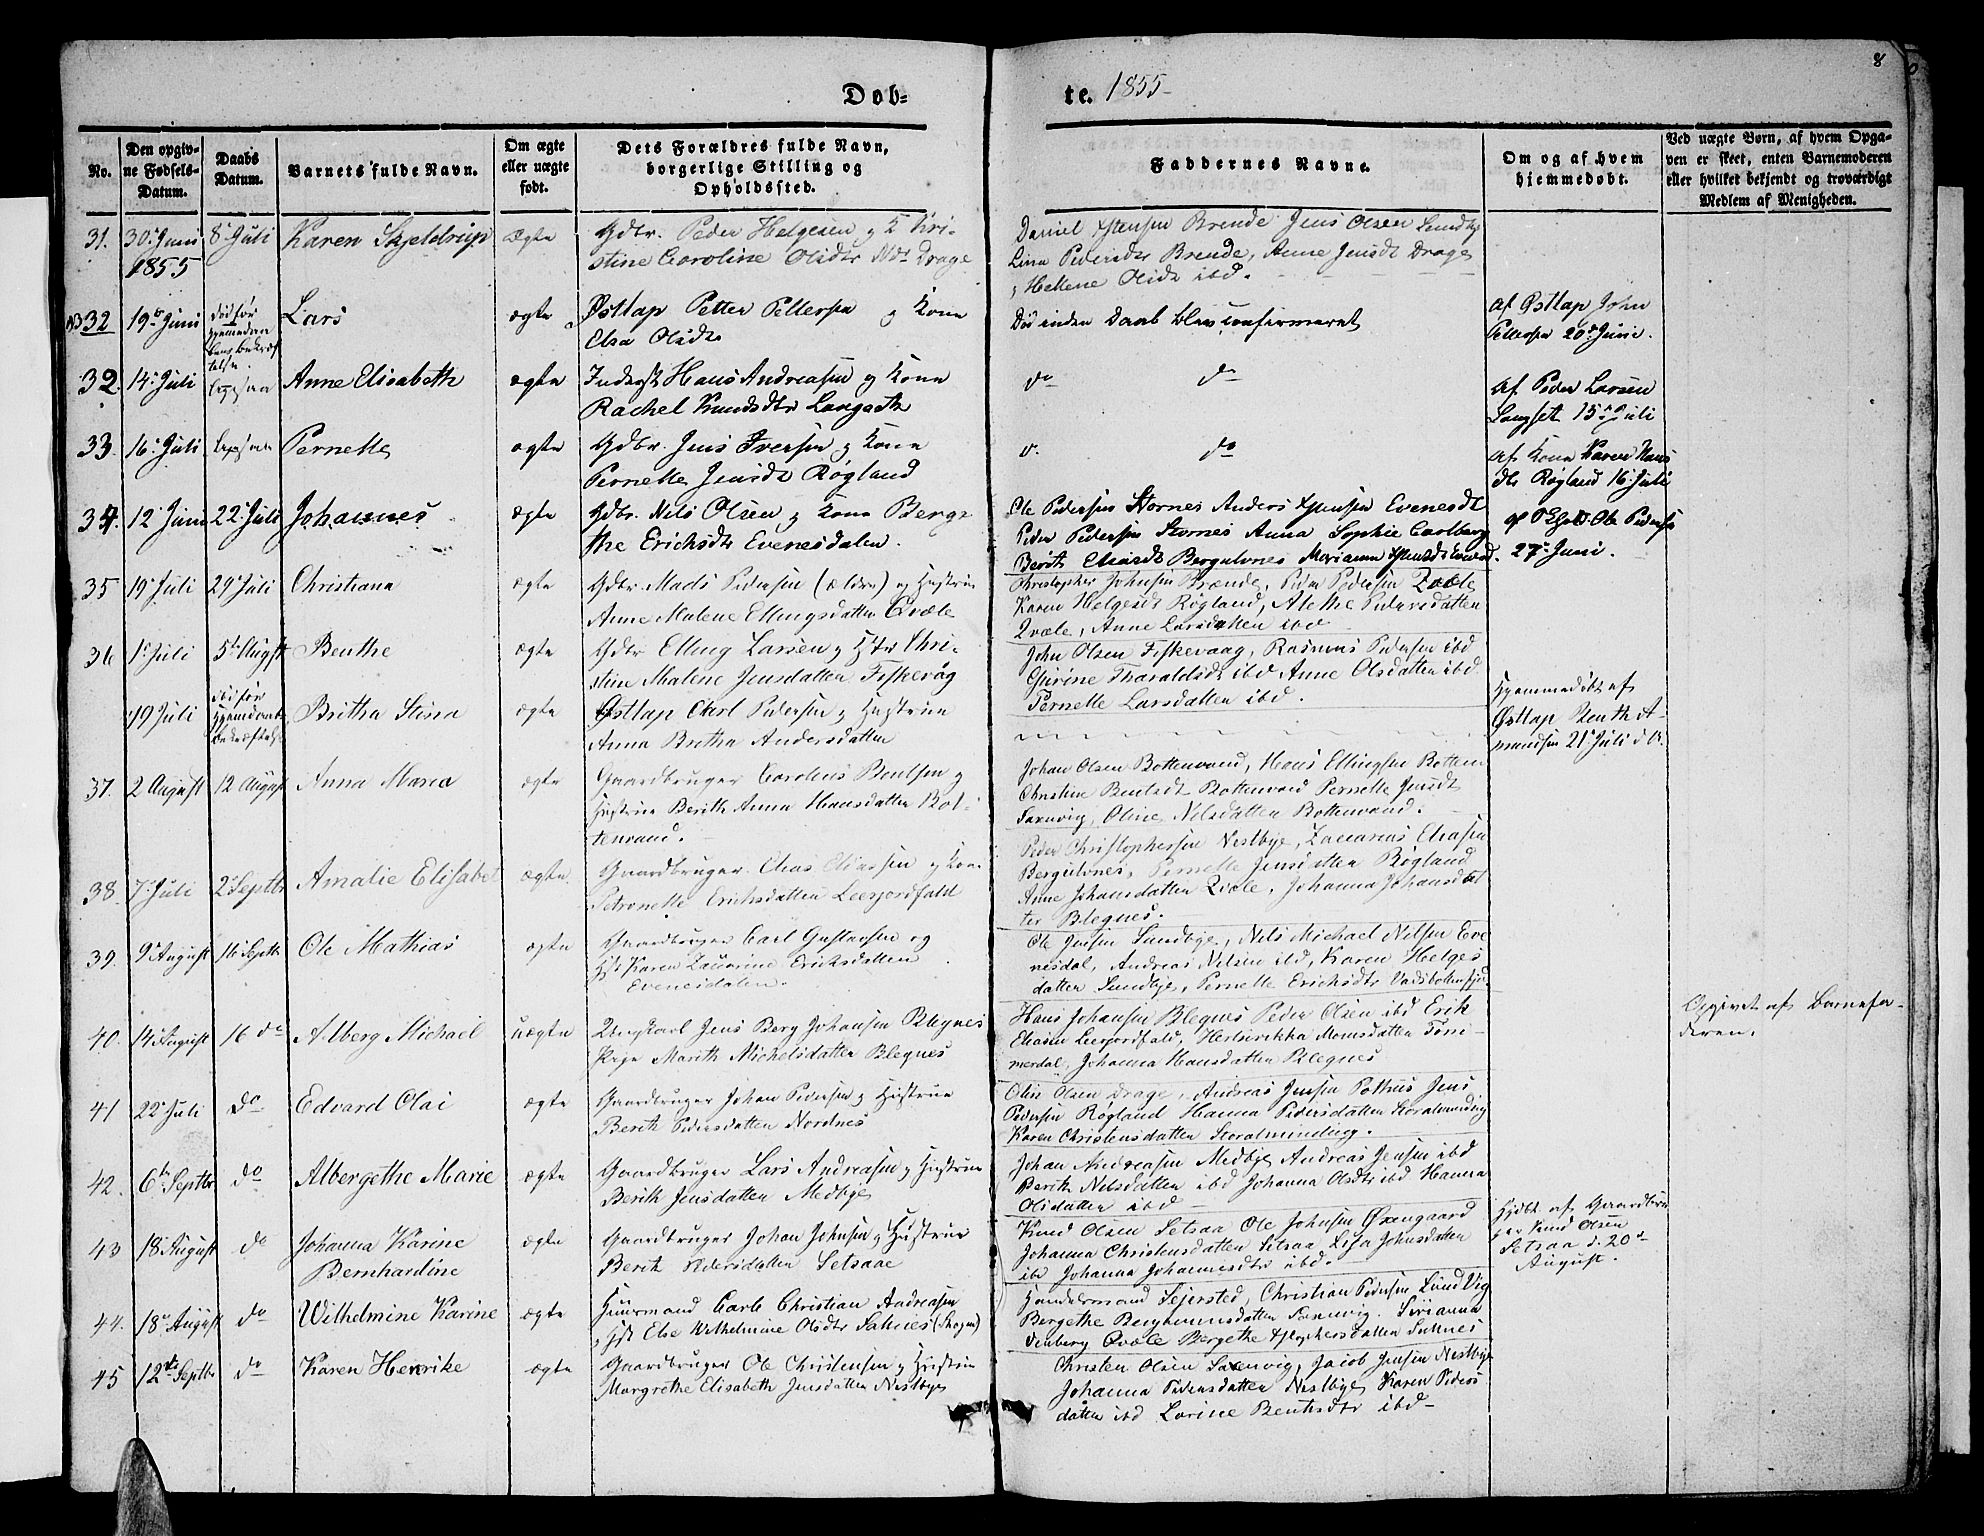 8
Døb=
te. 1855
No.
Den opgiv-
ne Fødsels-
Datum.
Daabs
Datum.
Barnets fulde Navn.
Om ægte
eller uægte
født.
Dets Forældres fulde Navn,
borgerlige Stilling og
Opholdssted.
Faddernes Navne.
Om og af hvem
hiemmedøbt.
Ved uægte Børn, af hvem Opga-
ven er skeet, enten Barnemoderen
eller hvilket bekjendt og troværdigt
Medlem af Menigheden.
31. 30. Juni 8. Juli Karen Skjeldrup ægte Gdbr. Peder Helgesen og K Kri-
1855 stine Caroline Olsdtr Drage
Daniel Brende Jens Olsen Sundby
Lina Pedersdtr Brende, Anne Jensdt Drage
Hellene Olsdt ibd.
NB 32 19de Juni død før Lars ægte Østlap Petter Pettersen og Kona
hjemmedaa
bens bekræf
telse.
Elsa Olsdtr
Død inden Daab blev confirmeret
af Østlap John
Pettersen 20de Juni.
32. 14. Juli Anne Elisabeth ægte Inderst Hans Andreasen og Kona
Rachel Knudsdtr Langseth
do do
af Peder Larsen
Langset 15de Juli
33. 16. Juli Pernelle ægte Gdbr. Jens Iversen og Kona
Pernelle Jensdt Røgland
do
af Kona Karen Hans
dtr Røgland 16. Juli
34. 12. Juni 22. Juli Johannes ægte Gdbr. Nils Olsen og Kona Berge
the Erichsdtr Evenesdalen.
Ole Pedersen Stornes Anders Evenesdl
Peder Pedersen Stornes Anna Sophie Carlberg
Berith Eliasdt Bergulvnes Marianna
af Ole Peders
27. Juni.
35 19. Juli 29. Juli Christiana ægte Gdbr. Mads Pedersen (ældre) og Hustrue
Anne Malene Ellingsdatter Qvæle
Christopher Johnsen Brænde, Peder Pedersen Qvæle
Karen Helgesdt Røgland, Alethe Pedersdatter
Qvæle, Anne Larsdatter ibd
36 1. Juli 5te Augst Benthe ægte Gdbr Elling Larsen og Hstr Chri-
stine Malene Jensdatter Fiskevog
John Olsen Fiskevaag, Rasmus Pedersen ibd
Gjørine Tharaldsdt ibd Anne Olsdatter ibd
Pernelle Larsdatter ibd.
19 Juli død før Britha Stina ægte Østlap Carl Pedersen og Hustrue
Anna Britha Andersdatter
Hjemmedøbt af
Østlap Benth A-
mundsen 21. Juli d. A.
37. 2 August 12 August Anna Maria ægte Gaardbruger Carolius Bentsen og
Hustrue Berith Anna Hansdatter Bot-
tenvand.
Johan Olsen Bottenvand, Hans Ellingsen Botten
Christine Bentsdt Bottenvand Pernelle Jensdt
Saxnvig, Oline Nilsdatter Bottenvand.
38. 7. Juli 2. Septbr Amalie Elisabet ægte. Gaardbruger Elias Eliassen og Kone
Petronelle Erichsdatter Leerfjordfald
Peder Christophersen Nestbye, Zacarias Eliasen
Bergulvnes, Pernelle Jensdatter Røgland
Anne Johansdatter Qvæle, Johanna Johansdat
ter Blegnes.
39. 9. August 16 Septbr Ole Mathias ægte Gaardbruger Carl Gustavsen og
Hst Karen Zacarine Erichsdatter
Evenesdalen.
Ole Jensen Sundbye, Nils Michael Nilsen Eve
nesdal, Andreas Nilsen ibd, Karen Helges
datter Sundbye, Pernelle Erichsdtr
40. 14. August 16 do Alberg Michael uægte Ungkarl Jens Berg Johansen Blegnes
Pige Marith Michelsdatter Blegnes
Hans Johansen Blegnes Peder Olsen ibd Erik
Eliasen Leerfjordfald, Momsdatter Tøm-
merdal, Johanna Hansdatter Blegnes
Opgivet af Barnefa-
deren.
41 22. Juli do Edvard Olai ægte Gaardbruger Johan Pedersen og Hustrue
Berith Pedersdatter Nordnes
Olsen Drage, Andreas Jensen Pothus Jens
Pedersen Røgland Hanna Pedersdatter Storalminding
Karen Christensdatter Storalminding.
42. 6te Septbr do Albergethe Marie ægte Gaardbruger Lars Andreasen og Hustrue
Berith Jensdatter Medbye
Johan Andreasen Medbye Andreas Jensen ibd
Berith Nilsdatter ibd Johanna Olsdtr ibd Hanna
Olsdatter ibd
43 18 August do Johanna Karine ægte Gaardbruger Johan Johnsen og Hustrue
Bernhardine Berit Pedersdatter Setsaae
Knud Olsen Setsaa Ole Johnsen Øxengaard
Johanna Christensdatter Setsaa Lisa Johnsdatter
ibd Johanna Johannesdtr ibd.
Hjdbt af Gaardbru
ger Knud Olsen
Setsaa d. 20de
August.
44. 18. August do Wilhelmine Karine ægte Huusmand Carl Christian Andreasen
Hst Else Wilhelmine Olsdtr Saknes (Skogen)
Handelsmand Sejersted, Christian Pedersen Lund Vig
Bergethe Saxnvig. Sirianna
Venberg Qvæle Bergethe Saknes
45 12te Septbr do Karen Henrike ægte Gaardbruger Ole Christensen og Hustrue
Margrethe Elisabeth Jensdatter Nestbye
Christen Olsen Saxenvig, Jacob Jensen Nestbye
Johanna Pedersdatter Nestbye Karen Peders
datter ibd Lorine Bentsdtr ibd